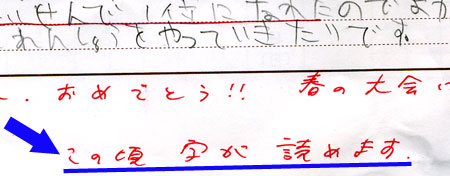 せんで1位になれたのでよか
れんしゅうをやっていきたいです。
おめでとう!! 春の大会
この頃 字が 読めます.